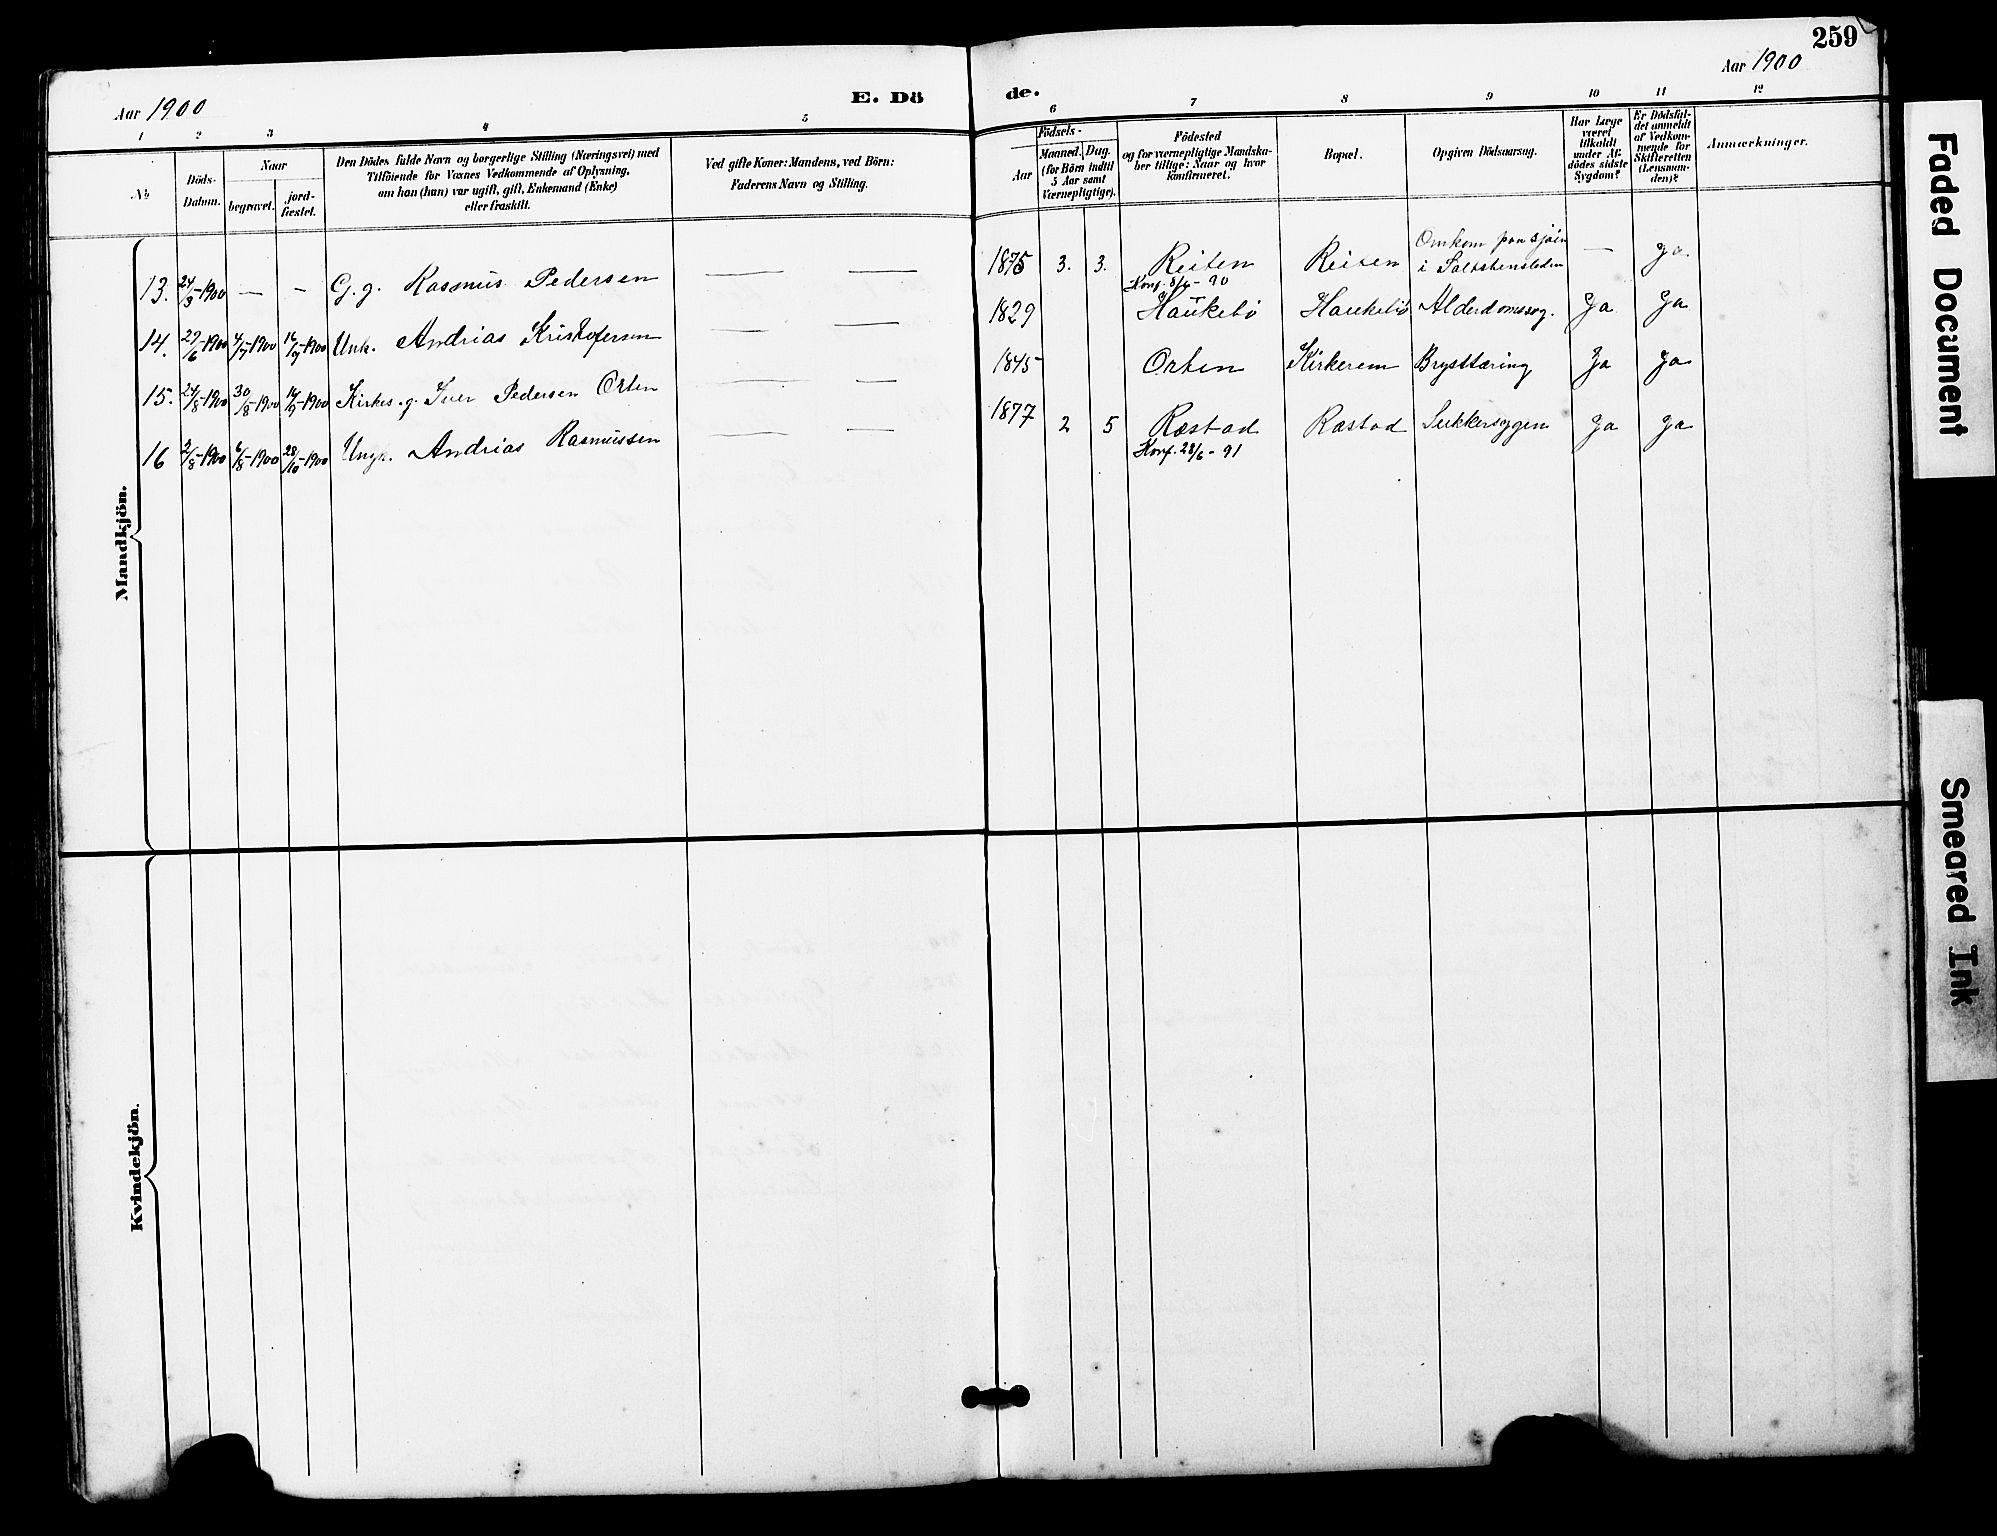 259
Aar 1900
Aar 1900
E. Dö
de.
1 2 3 4 5 6 7 8 9 10 11 12
No
Döds-
Datum.
Naar
begravet.
jord-
fæstet.
Den Dödes fulde Navn og borgerlige Stilling (Næringsvei) med
Tilföiende for Voxnes Vedkommende af Oplysning,
om han (hun) var ugift, gift, Enkemand (Enke)
eller fraskilt.
Ved gifte Koner: Mandens, ved Börn:
Faderens Navn og Stilling.
Födsels-
Aar
Maaned.
Dag.
(for Börn indtil
5 Aar samt
Værnepligtige).
Födested
og for værnepligtige Mandska-
ber tillige: Naar og hvor
konfirmeret.
Bopæl.
Opgiven Dödsaarsag.
Har Læge
været
tilkaldt
under Af-
dödes sidste
Sygdom?
Er Dödsfal-
det anmeldt
af Vedkom-
mende for
Skifteretten
(Lensman-
den)?
Anmærkninger.
Mandkjön.
13. 24/3-1900 — — G.g. Rasmus Pedersen — — 1875 3. 3. Reiten Reiten Omkom paa sjøen — ja.
Konf. 8/6-90 i
14. 29/6-1900 4/7-1900 16/7-1900 Unk. Andrias Kristofersen — — 1829 Haukebø Haukebø Alderdomssvag. Ja Ja
15. 24/8-1900 30/8-1900 16/9-1900 Kirkes.g. Iver Pedersen Orten — — 1845 Orten Kirkerem Brysttæring Ja Ja
16 2/8-1900 6/8-1900 28/10-1900 Ungk. Andrias Rasmussen — — 1877 2 5 Ræstad Ræstad Sukkersygen Ja Ja
Konf. 28/6-91
Kvindekjön.
Faded Document
Smeared Ink